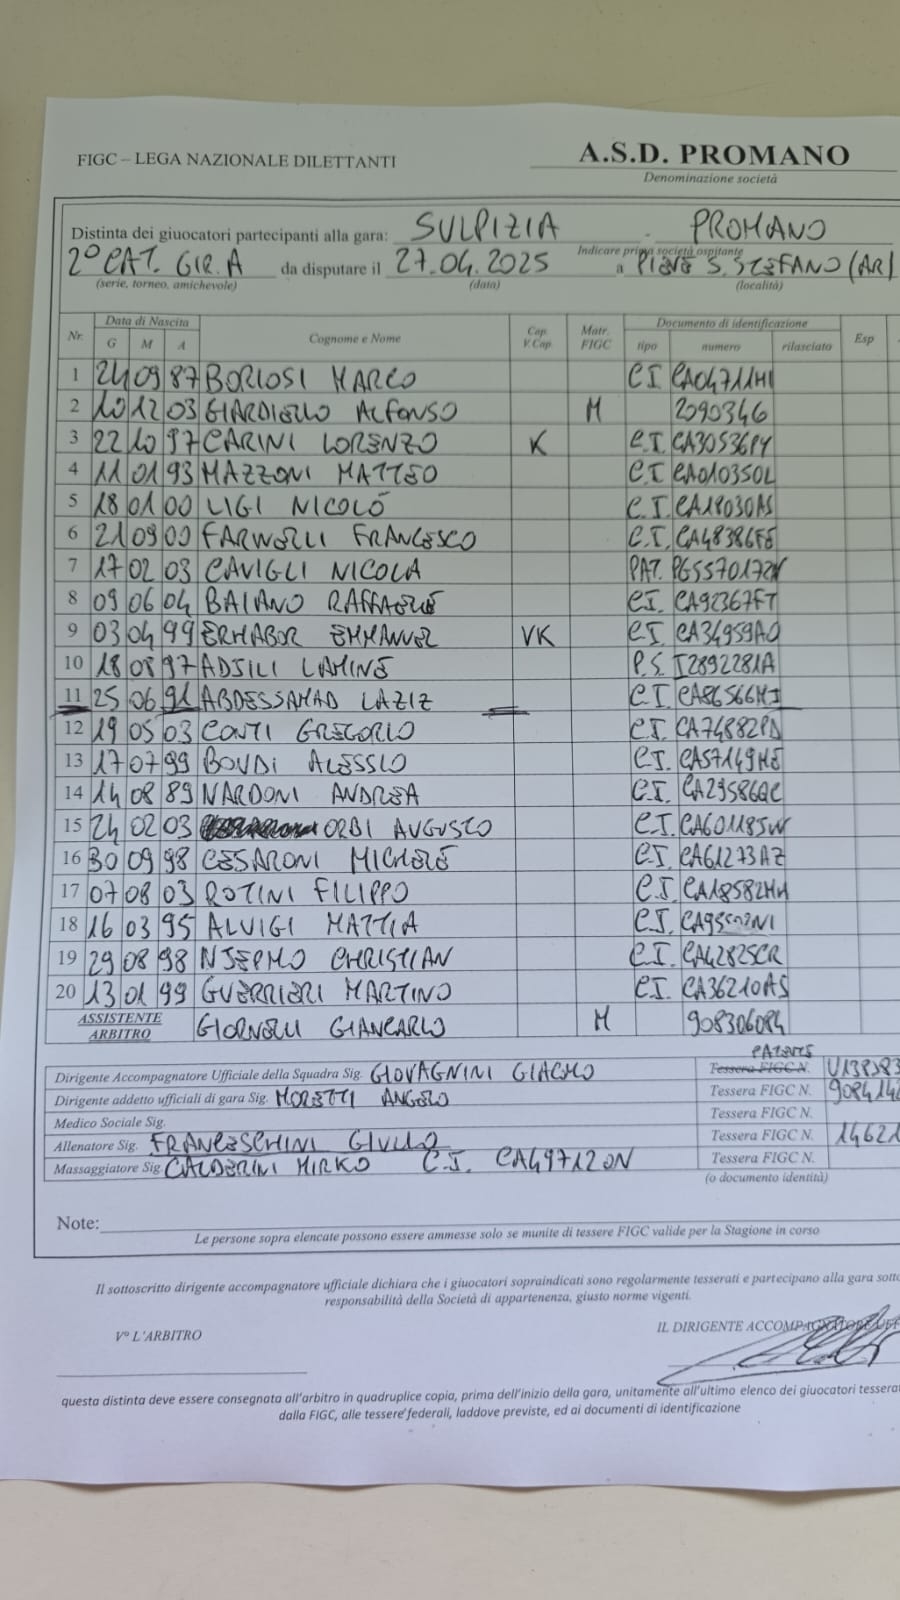 FIGC – LEGA NAZIONALE DILETTANTI
A.S.D. PROMANO
Denominazione società
Distinta dei giuocatori partecipanti alla gara: SULPIZIA - PROMANO
Indicare prima società ospitante
2° CAT. GIR. A da disputare il 27.04.2025 a PIEVE S. STEFANO (AR)
(serie, torneo, amichevole) (data) (località)
Nr. Data di Nascita Cognome e Nome Cap. V.Cap. Matr. FIGC Documento di identificazione Esp
G M A tipo numero rilasciato
1 24 09 87 BORIOSI MARCO C.I. CA04711HI
2 10 12 03 GIARDIELLO ALFONSO M 2090346
3 22 10 97 CARINI LORENZO K C.I. CA30536PY
4 11 01 93 MAZZONI MATTEO C.I. CA01035OL
5 18 01 00 LIGI NICOLÓ C.I. CA18030AS
6 21 09 00 FARNELLI FRANCESCO C.I. CA48386FE
7 17 02 03 CAVIGLI NICOLA PAT.
8 09 06 04 BAIANO RAFFAELE C.I. CA92367FT
9 03 04 99 ERHABOR EMMANUEL VK C.I. CA34959AO
10 18 08 97 ADJILI LAMINE P.S. I2892281A
11 25 06 91 ABDESSAMAD LAZIZ C.I.
12 19 05 03 CONTI GREGORIO C.I. CA74882PD
13 17 07 99 BOUDI ALESSIO C.I. CA57149HE
14 14 08 89 NARDONI ANDREA C.I. CA29586QC
15 24 02 03 ORBI AUGUSTO C.I. CA60118JW
16 30 09 98 CESARONI MICHELE C.I. CA61273AZ
17 07 08 03 ROTINI FILIPPO C.I. CA18582HH
18 16 03 95 ALUIGI MATTIA C.I.
19 29 08 98 NJEPMO CHRISTIAN C.I. CA42825CR
20 13 01 99 GUERRIERI MARTINO C.I. CA36210AS
ASSISTENTE ARBITRO GIORNELLI GIANCARLO M 908306084
PATENTE
Dirigente Accompagnatore Ufficiale della Squadra Sig. GIOVAGNINI GIACMO Tessera FIGC N.
Dirigente addetto ufficiali di gara Sig. MORETTI ANGELO Tessera FIGC N.
Medico Sociale Sig. Tessera FIGC N.
Allenatore Sig. FRANCESCHINI GIULIO Tessera FIGC N. 14621
Massaggiatore Sig. CALDERINI MIRKO C.I. CA49712ON Tessera FIGC N.
(o documento identità)
Note:
Le persone sopra elencate possono essere ammesse solo se munite di tessere FIGC valide per la Stagione in corso
Il sottoscritto dirigente accompagnatore ufficiale dichiara che i giuocatori sopraindicati sono regolarmente tesserati e partecipano alla gara sotto
responsabilità della Società di appartenenza, giusto norme vigenti.
V° L'ARBITRO
IL DIRIGENTE
questa distinta deve essere consegnata all'arbitro in quadruplice copia, prima dell'inizio della gara, unitamente all'ultimo elenco dei giuocatori tessera
dalla FIGC, alle tessere federali, laddove previste, ed ai documenti di identificazione